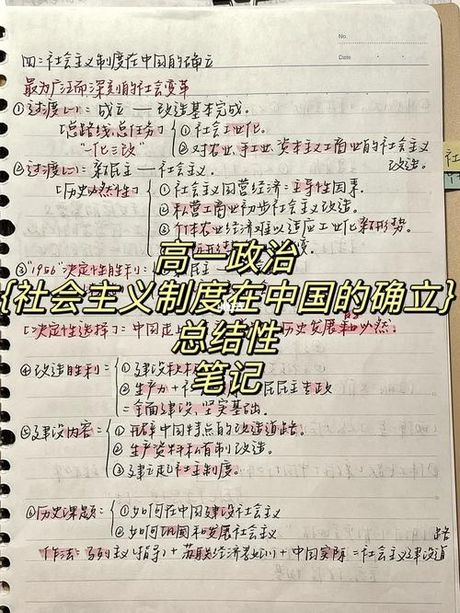 No.
Date
四：社会主义制度在中国的确立
最为广泛而深刻的社会变革
①过渡(一)：成立——改造基本完成.
[总路线,总任务] ①社会工业化.
"一化三改" ②对农业,手工业,资本主义工商业的社会主义
改造.
②过渡(二)：新民主——社会主义.
[历史必然性] ①社会主义国营经济：主导性因素.
②私营工商业初步社会主义改造.
③个体农业经济难以适应工业化新形势.
③"1956"决定性胜利：
高一政治
{社会主义制度在中国的确立}
总结性
笔记
[决定性选择]：中国走 历史发展 必然.
④改造胜利= ①建设
②生产力+社 民主专政
=全面建设,坚实基础.
⑤建设内容= ①开辟中国特点的改造道路.
②生产资料私有制改造.
③建立起社主制度.
⑥历史课题：①如何在中国建设社会主义
②如何巩固和发展社会主义
作法：马列主义(指导)+苏联经济 +中国实际=社会主义建设道
路